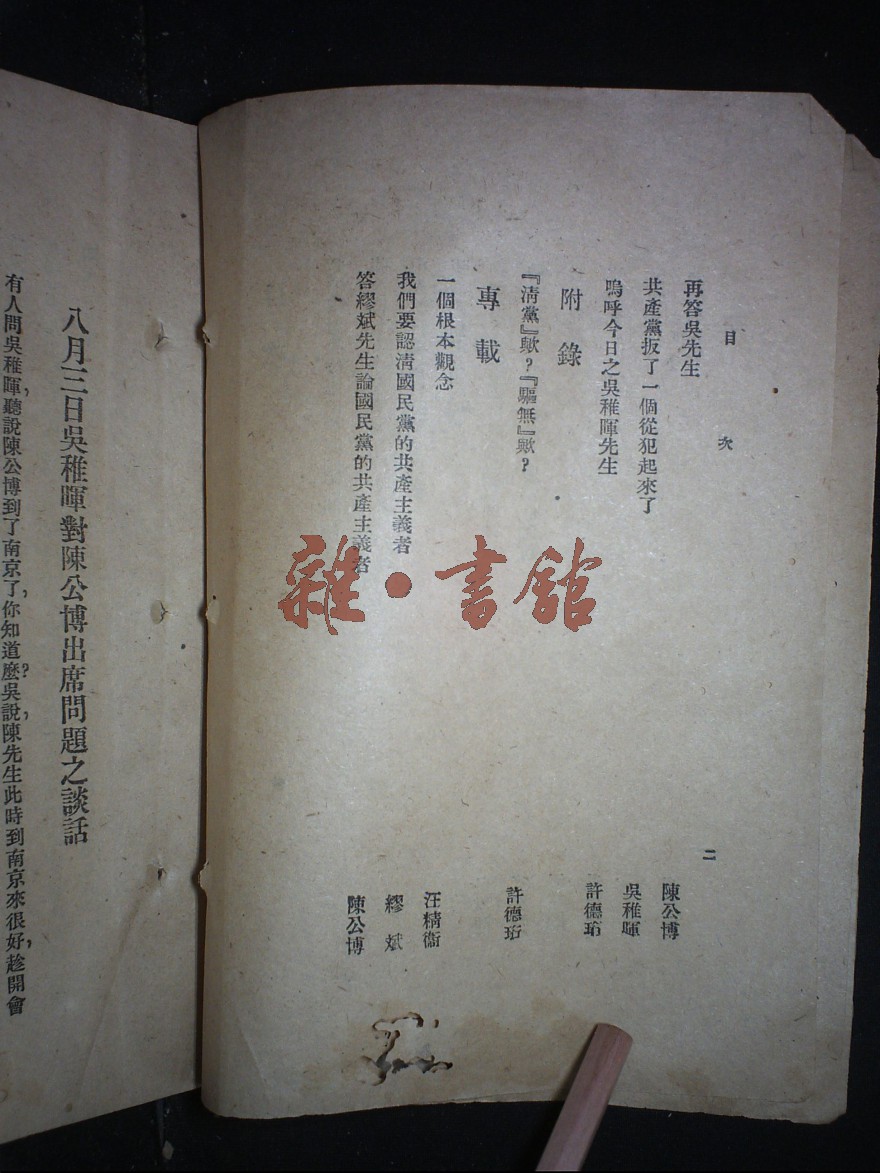 目次
二
再答吳先生 陳公博
共產黨扳了一個從犯起來了 吳稚暉
嗚呼今日之吳稚暉先生 許德珩
附錄
『清黨』歟？『驅無』歟？ 許德珩
專載
一個根本觀念 汪精衞
我們要認清國民黨的共產主義者 繆斌
答繆斌先生論國民黨的共產主義者 陳公博
八月三日吳稚暉對陳公博出席問題之談話
有人問吳稚暉，聽說陳公博到了南京了，你知道麼？吳說，陳先生此時到南京來很好，趁開會
雜·書館